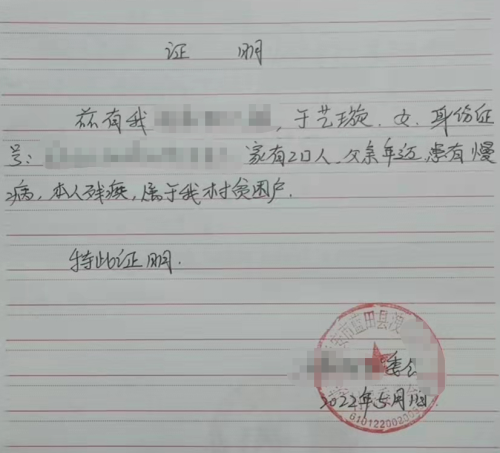 证 明
兹有我 , 于艺璇, 女, 身份证
号: 家有2口人, 父亲年迈, 患有慢
病, 本人残疾, 属于我村贫困户.
特此证明.
安市蓝田县
委会
2022年5月1日